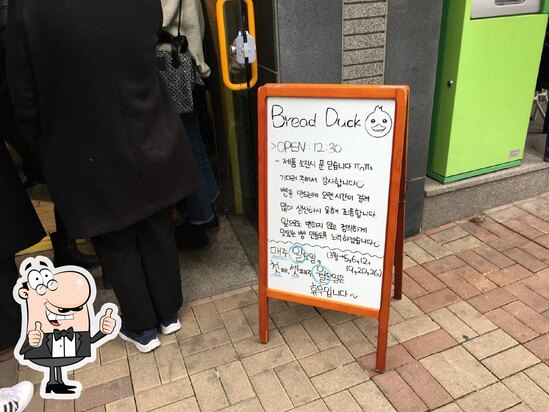 Bread Duck
>OPEN : 12:30
- 제품 소진시 문 닫습니다 ㅠㅅㅠ
기다려 주셔서 감사합니다
빵을 만드는데 오랜시간이 걸려
많이 생산하지 못해 죄송합니다.
앞으로도 변하지 않고 정직하게
맛있는 빵 만들도록 노력하겠습니다
매주 일요일, (3월→5,6,12,
19,20,26)
첫째,셋째주 월요일은
휴무입니다~